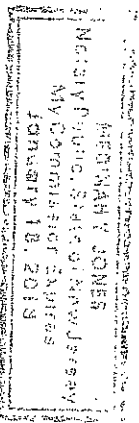 JONES
Notary Public, State of New Jersey
My Commission Expires
January 18, 2013